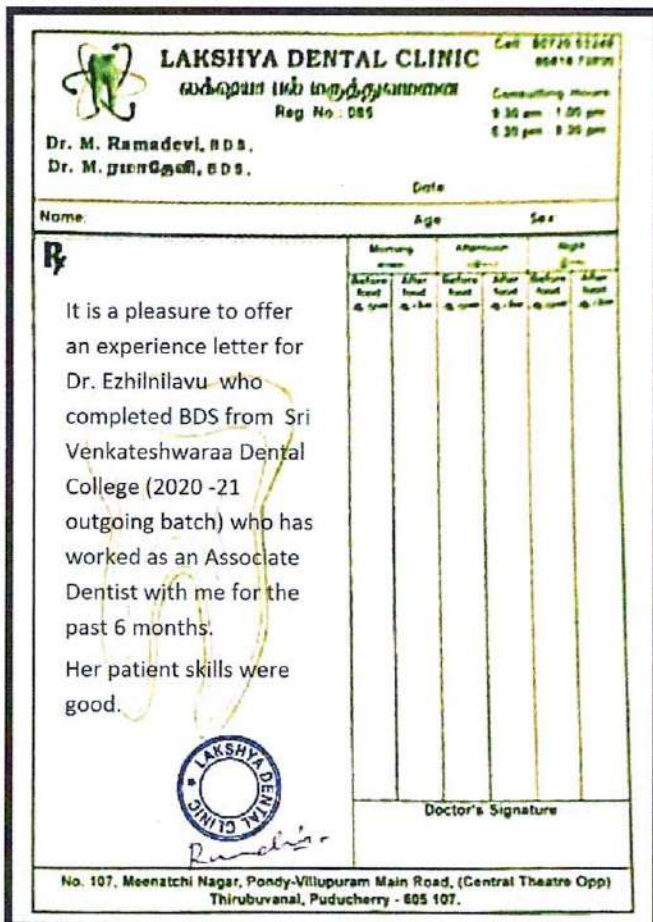 LAKSHYA DENTAL CLINIC
லக்ஷயா பல் மருத்துவமனை
Reg No: 085
Cell
Consulting Hours
9.30 am - 1.00 pm
5.30 pm - 8.30 pm
Dr. M. Ramadevi, BDS,
Dr. M. ரமாதேவி, BDS,
Date
Name: Age Sex
Morning Afternoon Night
Before food After food Before food After food Before food After food
Rx
It is a pleasure to offer
an experience letter for
Dr. Ezhilnilavu who
completed BDS from Sri
Venkateshwaraa Dental
College (2020 -21
outgoing batch) who has
worked as an Associate
Dentist with me for the
past 6 months.
Her patient skills were
good.
LAKSHYA DENTAL CLINIC
Doctor's Signature
No. 107, Meenatchi Nagar, Pondy-Villupuram Main Road, (Central Theatre Opp)
Thirubuvanai, Puducherry - 605 107.